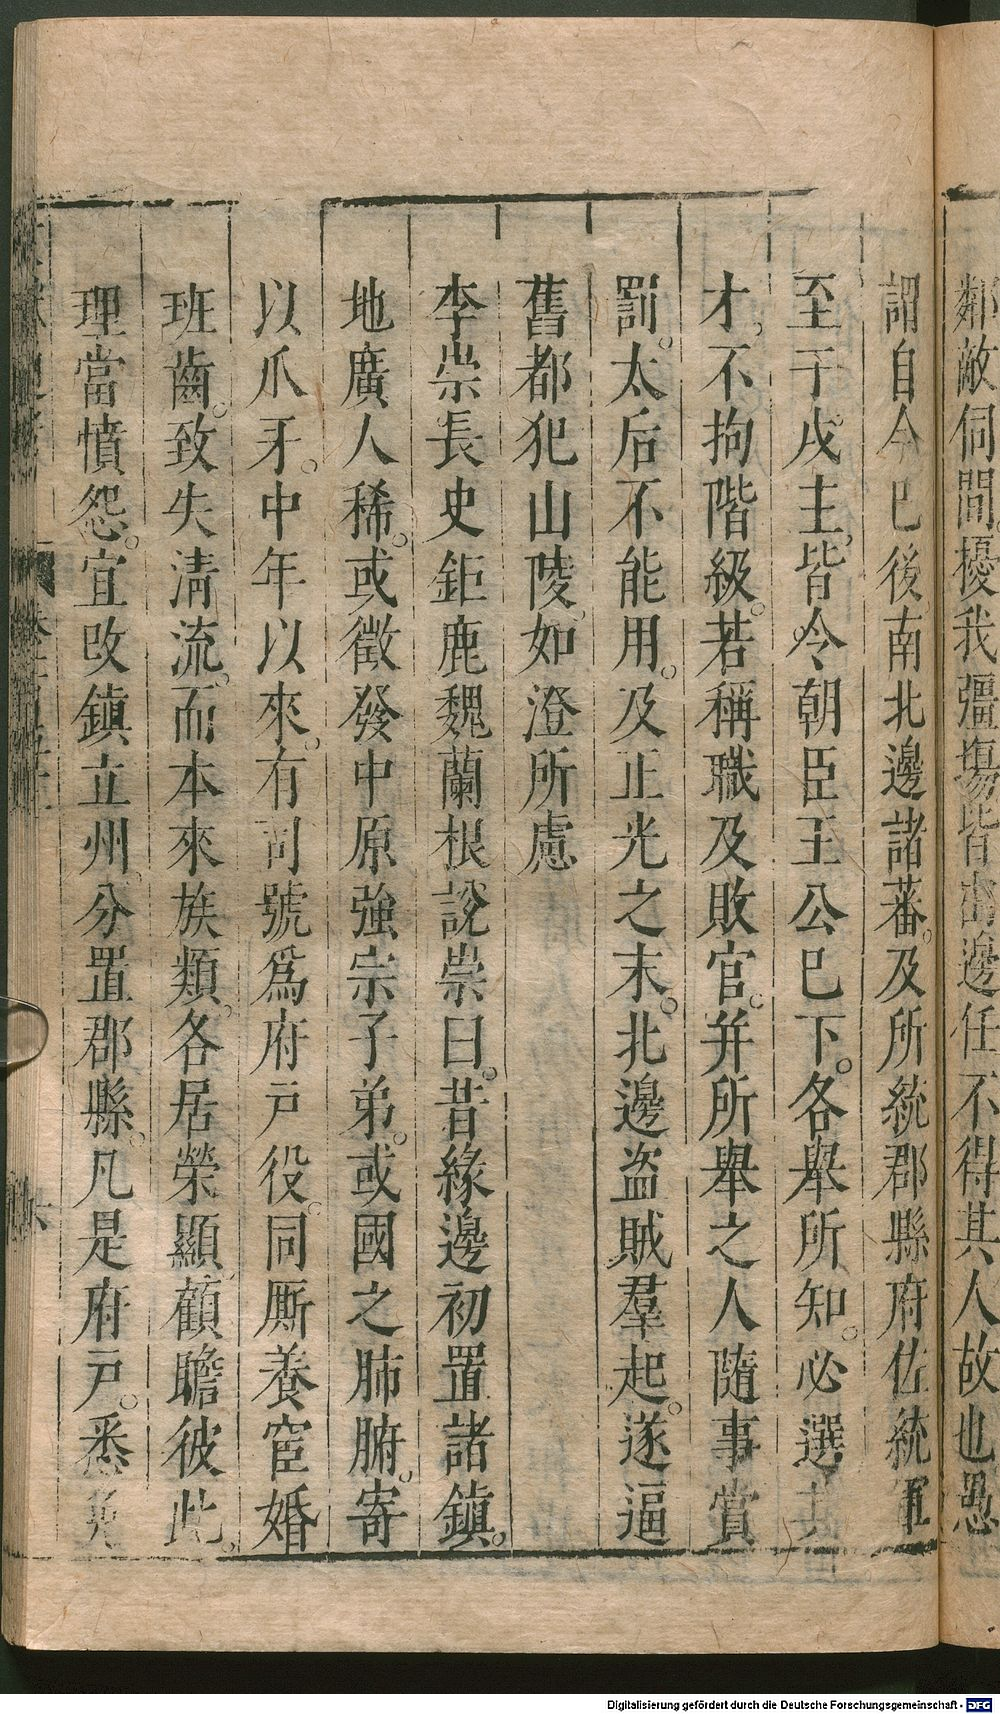 鄰敵伺間擾我疆場皆由邊任不得其人故也愚
謂自今已後南北邊諸蕃。及所統郡縣府佐統軍
至于戍主。皆令朝臣王公已下。各舉所知。必選其
才。不拘階級。若稱職及敗官。并所舉之人隨事賞
罰。太后不能用。及正光之末。北邊盜賊羣起。遂逼
舊都犯山陵。如澄所慮
李崇長史鉅鹿魏蘭根說崇曰。昔緣邊初置諸鎮。
地廣人稀。或徵發中原強宗子弟。或國之肺腑。寄
以爪牙。中年以來。有司號爲府戸役。同厮養宦婚
班齒。致失淸流。而本來族類。各居榮顯。顧瞻彼此。
理當憤怨。宜改鎮立州。分置郡縣。凡是府戸。悉免
六
Digitalisierung gefördert durch die Deutsche Forschungsgemeinschaft - DFG